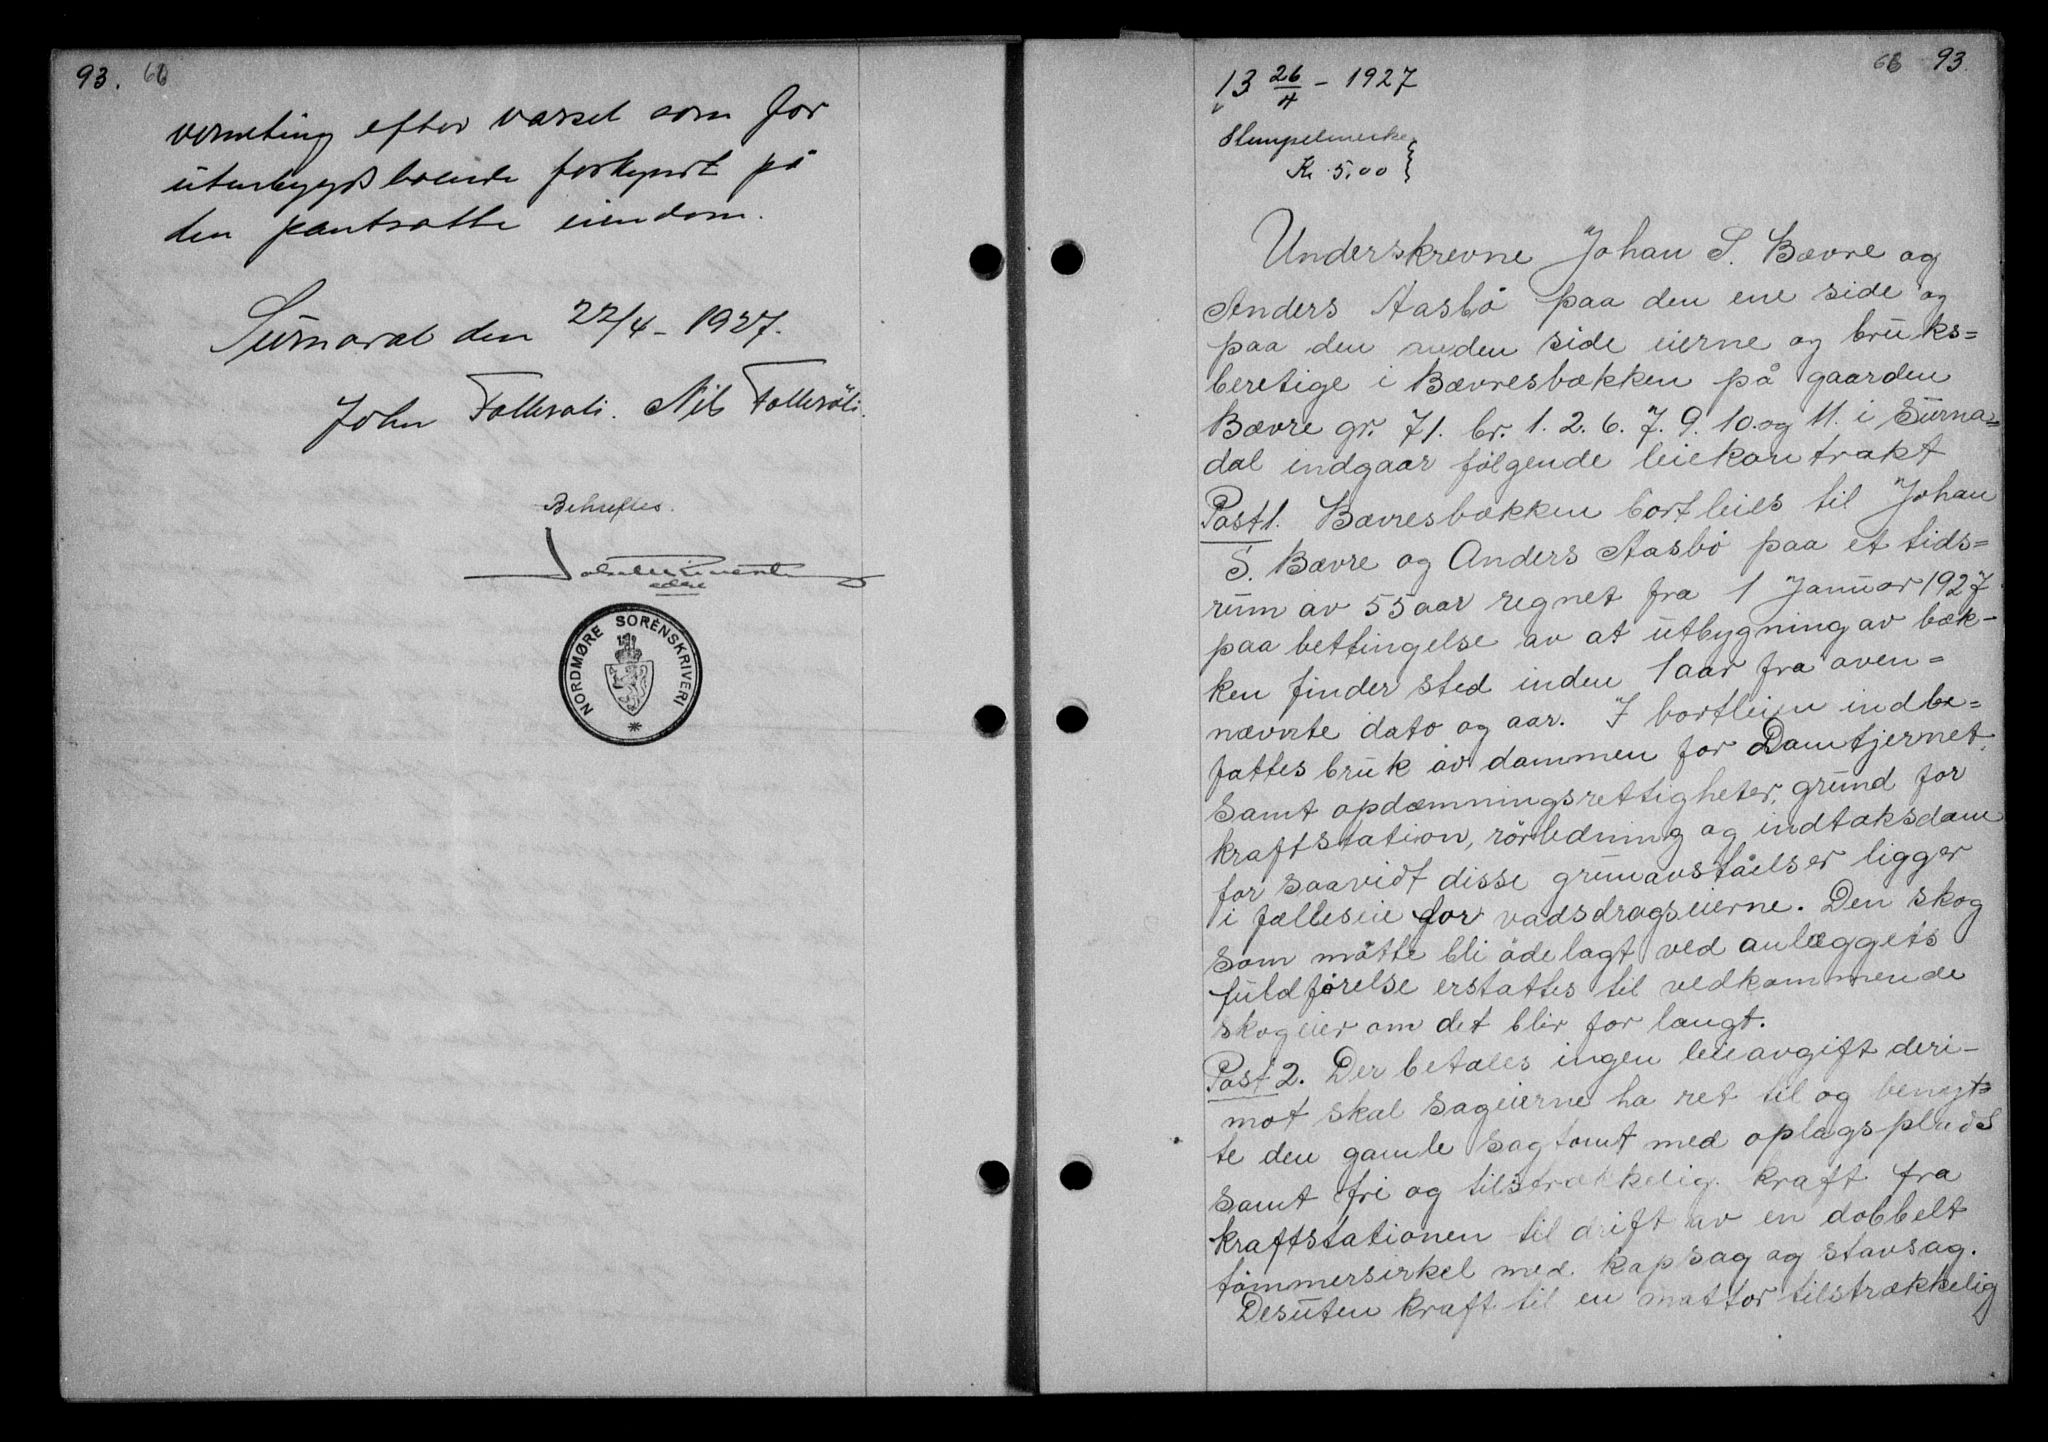 93. 66
verneting efter varsel som for
utenbygds boende forkyndt på
den pantsatte eiendom.
Surnadal den 22/4 - 1927.
John Follesöli. Nils Follesöli.
Bekreftes.
NORDMØRE SORENSKRIVERI
66 93.
13 26/4 - 1927
Stempelmerke
Kr 5.00
Underskrevne Johan S. Bævre og
Anders Aasbö paa den ene side og
paa den anden side eierne og bruks=
beretige i Bævresbækken på gaarden
Bævre gr. 71. br. 1. 2. 6. 7. 9. 10. og 11. i Surna=
dal indgaar følgende leiekontrakt
Post 1. Bævresbækken bortleies til Johan
S. Bævre og Anders Aasbö paa et tids=
rum av 55 aar regnet fra 1 Januar 1927
paa bettingelse av at utbygning av bæk-
ken finder sted inden 1 aar fra oven=
nævnte dato og aar. I bortleien indbe=
fattes bruk av dammen for Damtjernet,
samt opdæmningsrettigheter, grund for
kraftstation, rörledning og indtaksdam
for saavidt disse grunavståelser ligger
i fælleseie for vadsdragseierne. Den skog
som måtte bli ödelagt ved anlæggets
fuldførelse erstattes til vedkommende
skogeier om det blir for langt.
Post 2. Der betales ingen leieavgift deri-
mot skal sageierne ha ret til og benyt=
te den gamle sagtomt med oplagsplads
samt fri og tilstrækkelig kraft fra
kraftstationen til drift av en dobbelt
tömmersirkel med kapsag og stavsag.
Desuten kraft til en mottor tilstrækkelig